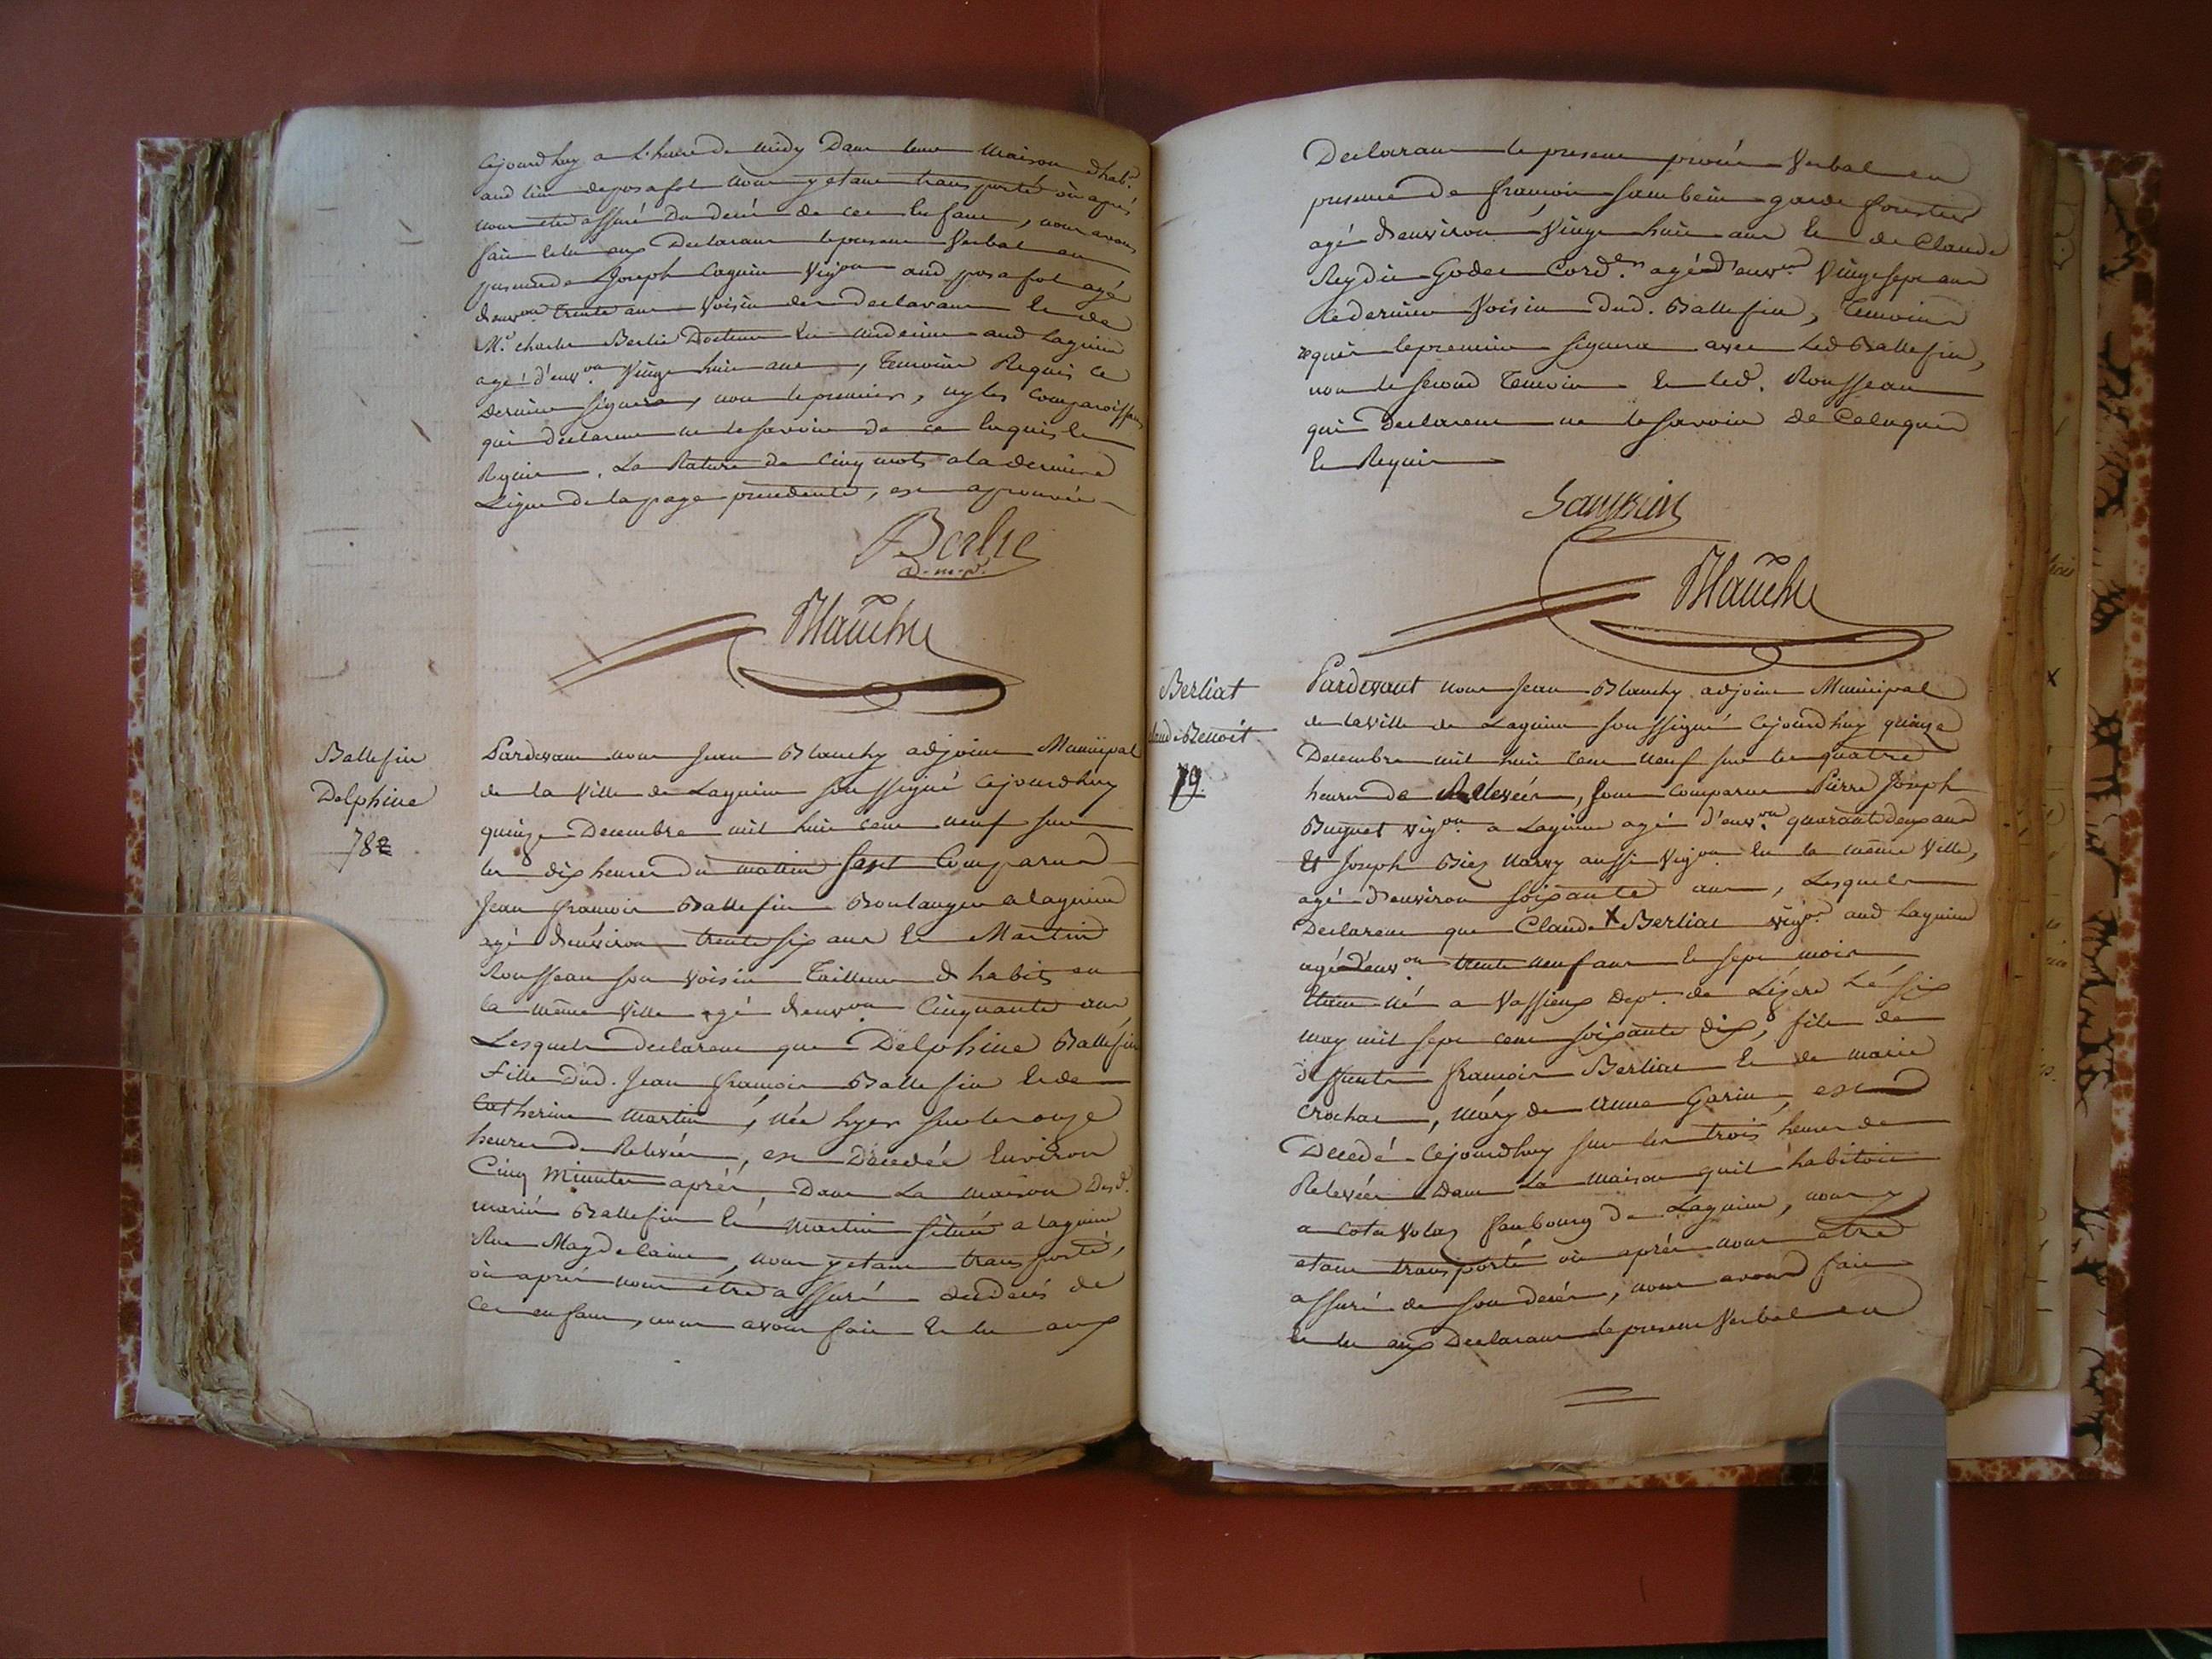 cejourdhuy a l'heure de midy Dans leur Maison d'hab.on
aud lieu de posafol nous y etant transporté où après
nous etre assuré du decés de cet Enfant, nous avons
fait et lu aux Declarans le present Verbal en
presence de Joseph Cognin Vig.on aud posafol agé
d'env.on trente ans Voisin des declarans et de
M.r charles Berlie Docteur En medecine aud Lagnieu
agé d'env.on Vingt huit ans, temoins Requis le
dernier signera, non le premier, ny les comparoissans
qui declarent ne le savoir de ce Enquis et
Requis. La Rature de Cinq mots a la derniere
Ligne de la page precedente, est aprouvée
Berlie
d.-m.-p.
Blanchy
Ballefin
Delphine
78
Pardevant nous Jean Blanchy adjoint Municipal
de la Ville de Lagnieu soussigné cejourdhuy
quinze Decembre mil huit cent neuf sur
les dix heures du matin sont Comparus
Jean francois Ballefin Boulanger a lagnieu
agé d'environ trente six ans Et Martin
Rousseau son voisin Tailleur d'habits en
la même Ville agé d'env.on Cinquante ans
Lesquels declarent que Delphine Ballefin
fille dud. Jean francois Ballefin et de
Catherine Martin, née hyer sur les onze
heures de Relevée, est Décedée Environ
Cinq minutes après, Dans La maison Desd.
mariés Ballefin Et Martin située a lagnieu
Rue Magdelaine, nous y etant transporté,
où après nous être assuré du decés de
cet enfant, nous avons fait Et lu aux
Declarans le present procès Verbal en
presence de francois Sambein garde forestier
agé d'environ Vingt huit ans Et de Claude
Rey dit Godet Cord.er agé d'env.on Vingt sept ans
ce dernier Voisin dud. Ballefin, temoins
requis le premier signera avec Led Ballefin,
non le second temoin Et led. Rousseau
qui Declarent ne le savoir de Ce Enquis
Et Requis
Sambein
Blanchy
Berliat
Claude Benoit
79
Pardevant nous Jean Blanchy adjoint Municipal
de la Ville de Lagnieu soussigné cejourdhuy quinze
Decembre mil huit cent neuf sur les quatre
heures de Relevée, sont comparus Pierre Joseph
Buynet vig.on a Lagnieu agé d'env.on quarante deux ans
Et Joseph Biez Marny aussi Vig.on En la même Ville,
agé d'environ soixante ans, Lesquels
Declarent que Claude X Berliat vig.on aud Lagnieu
agé d'env.on trente neuf ans et sept mois
né a Vassieux Dep.t de L'isere Le six
may mil sept cent soixante dix, fils de
deffunts francois Berliat Et de marie
Crochat, Mary de anne Garin, est
Decedé Cejourdhuy sur les trois heures de
Relevée Dans La maison qu'il habitoit
a cota volaz faubourg De Lagnieu, nous y
etant transporté où après nous être
assuré de son decés, nous avons fait
Et lu aux Declarans le present Verbal en